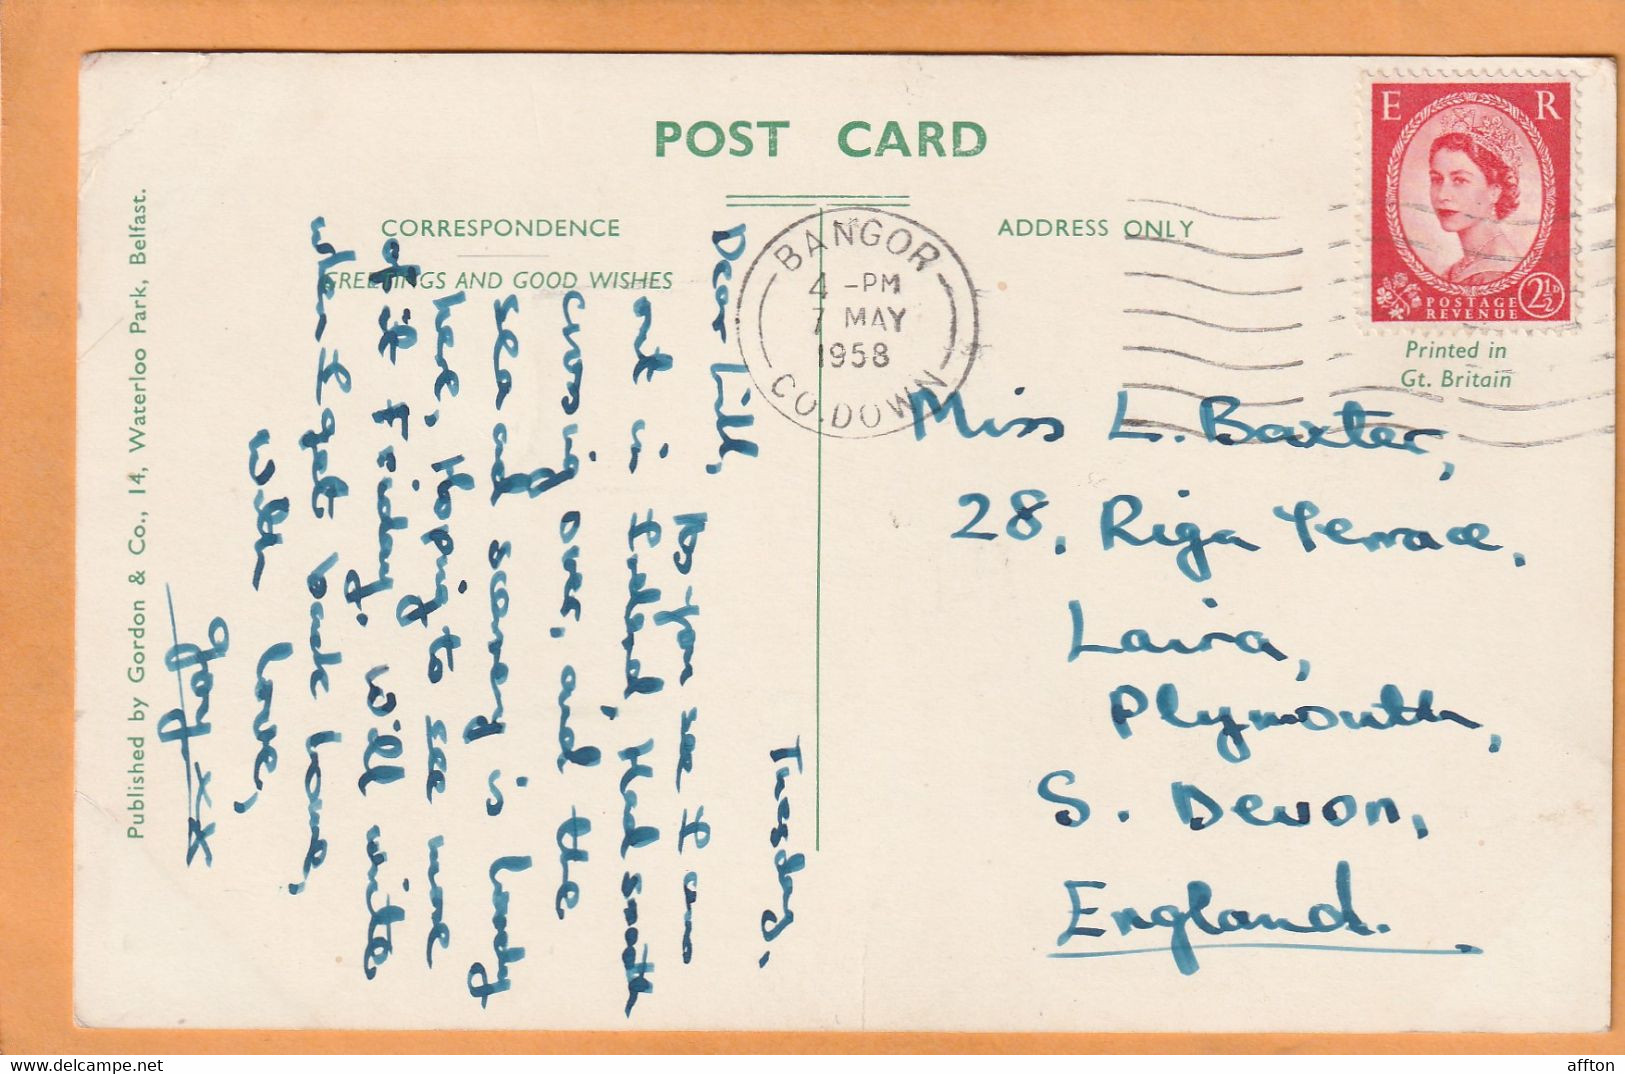 POST CARD
CORRESPONDENCE
GREETINGS AND GOOD WISHES
ADDRESS ONLY
E R
POSTAGE
REVENUE
2½D
Printed in
Gt. Britain
BANGOR
4 -PM
7 MAY
1958
CO. DOWN
Tuesday.
Dear Lill,
As you see I am
out in Ireland, Had smooth
crossing over, and the
sea and scenery is lovely
here, Hoping to see more
of it Friday. Will write
when I get back home,
With love,
Joy x x
Miss L. Baxter,
28, Riga Terrace,
Laira,
Plymouth,
S. Devon,
England.
Published by Gordon & Co., 14, Waterloo Park, Belfast.
delcampe.net
affton